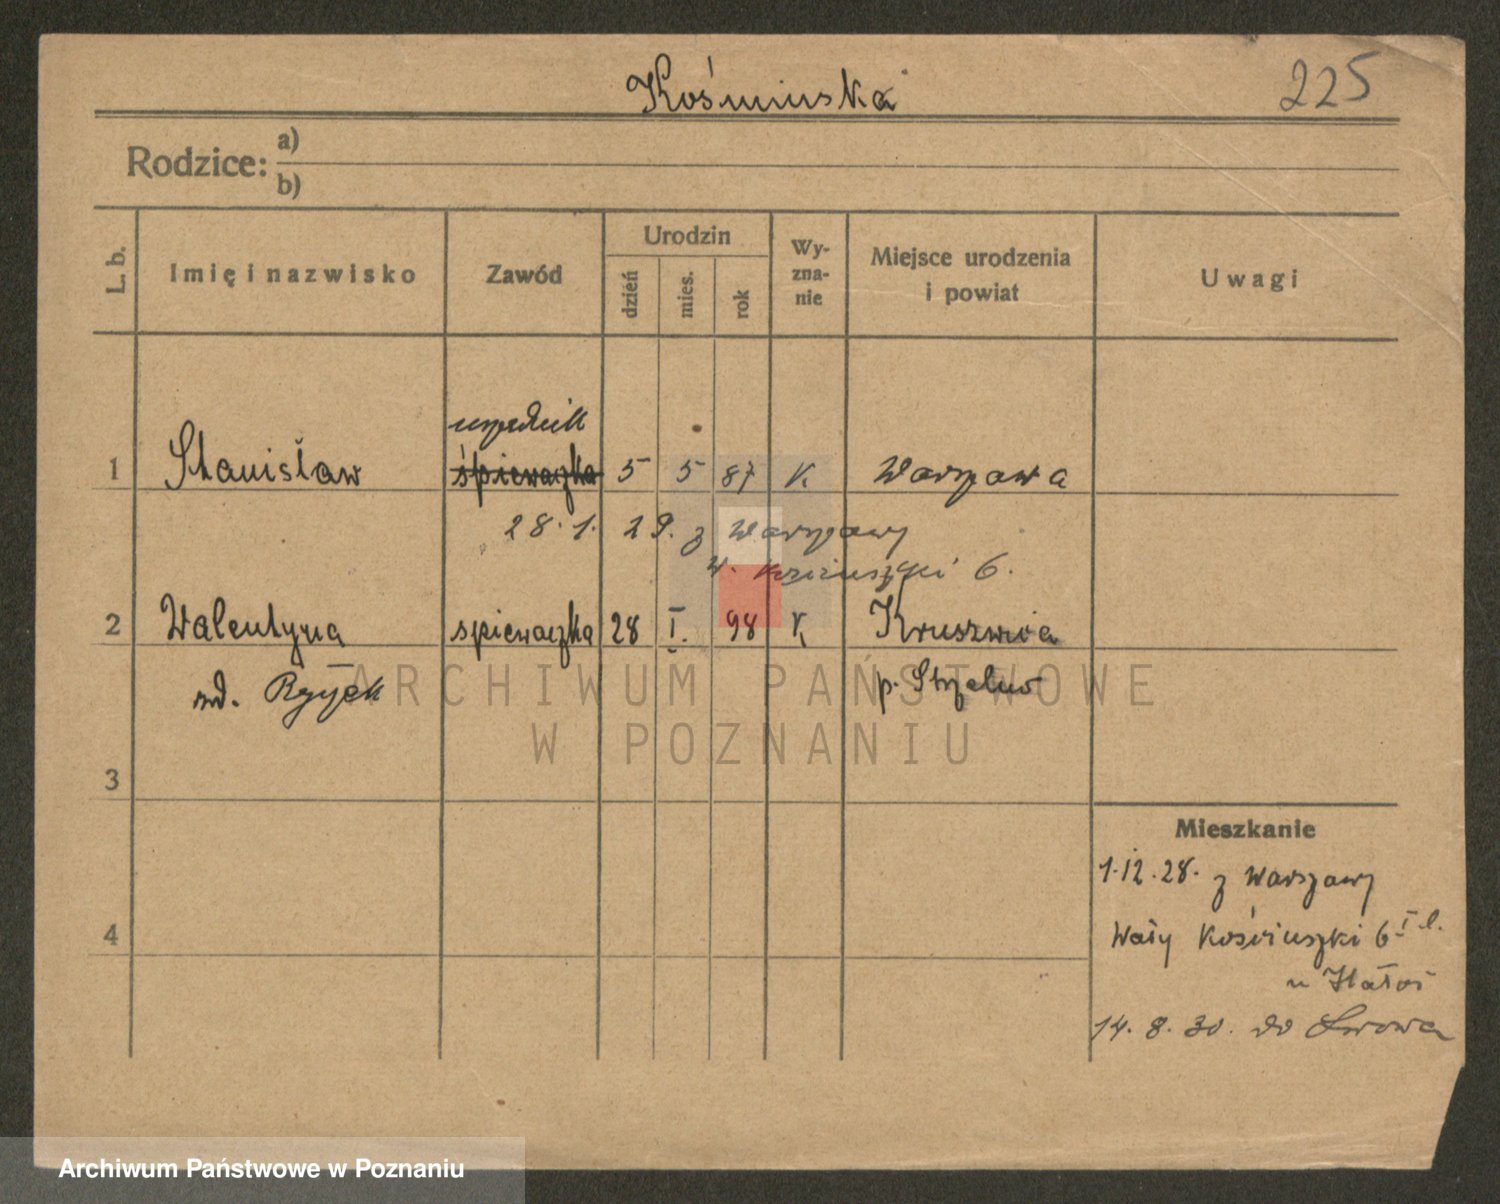 Kośmińska 225
Rodzice: a)
b)
L. b. Imię i nazwisko Zawód Urodzin dzień mies. rok Wy-zna-nie Miejsce urodzenia i powiat Uwagi
urzędnik
1 Stanisław śpiewaczka 5 5 87 K. Warszawa
28. 1. 29. z Warszawy
W. Kościuszki 6.
2 Walentyna spiewaczka 28 I. 98 K Kruszwica
p. Strzelno
ARCHIWUM PAŃSTWOWE
W POZNANIU
3
Mieszkanie
1.12.28. z Warszawy
4
Wały Kościuszki 6 I
u
14. 8. 30. do Lwowa
Archiwum Państwowe w Poznaniu